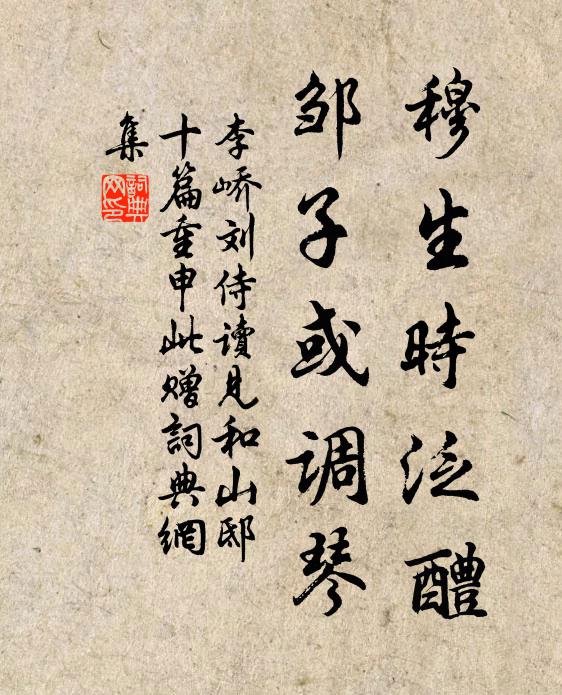 穆生時泛醴
邹子或调琴
李峤刘侍读见和山邸
十篇重申此赠詞典網
集
詞典
网印